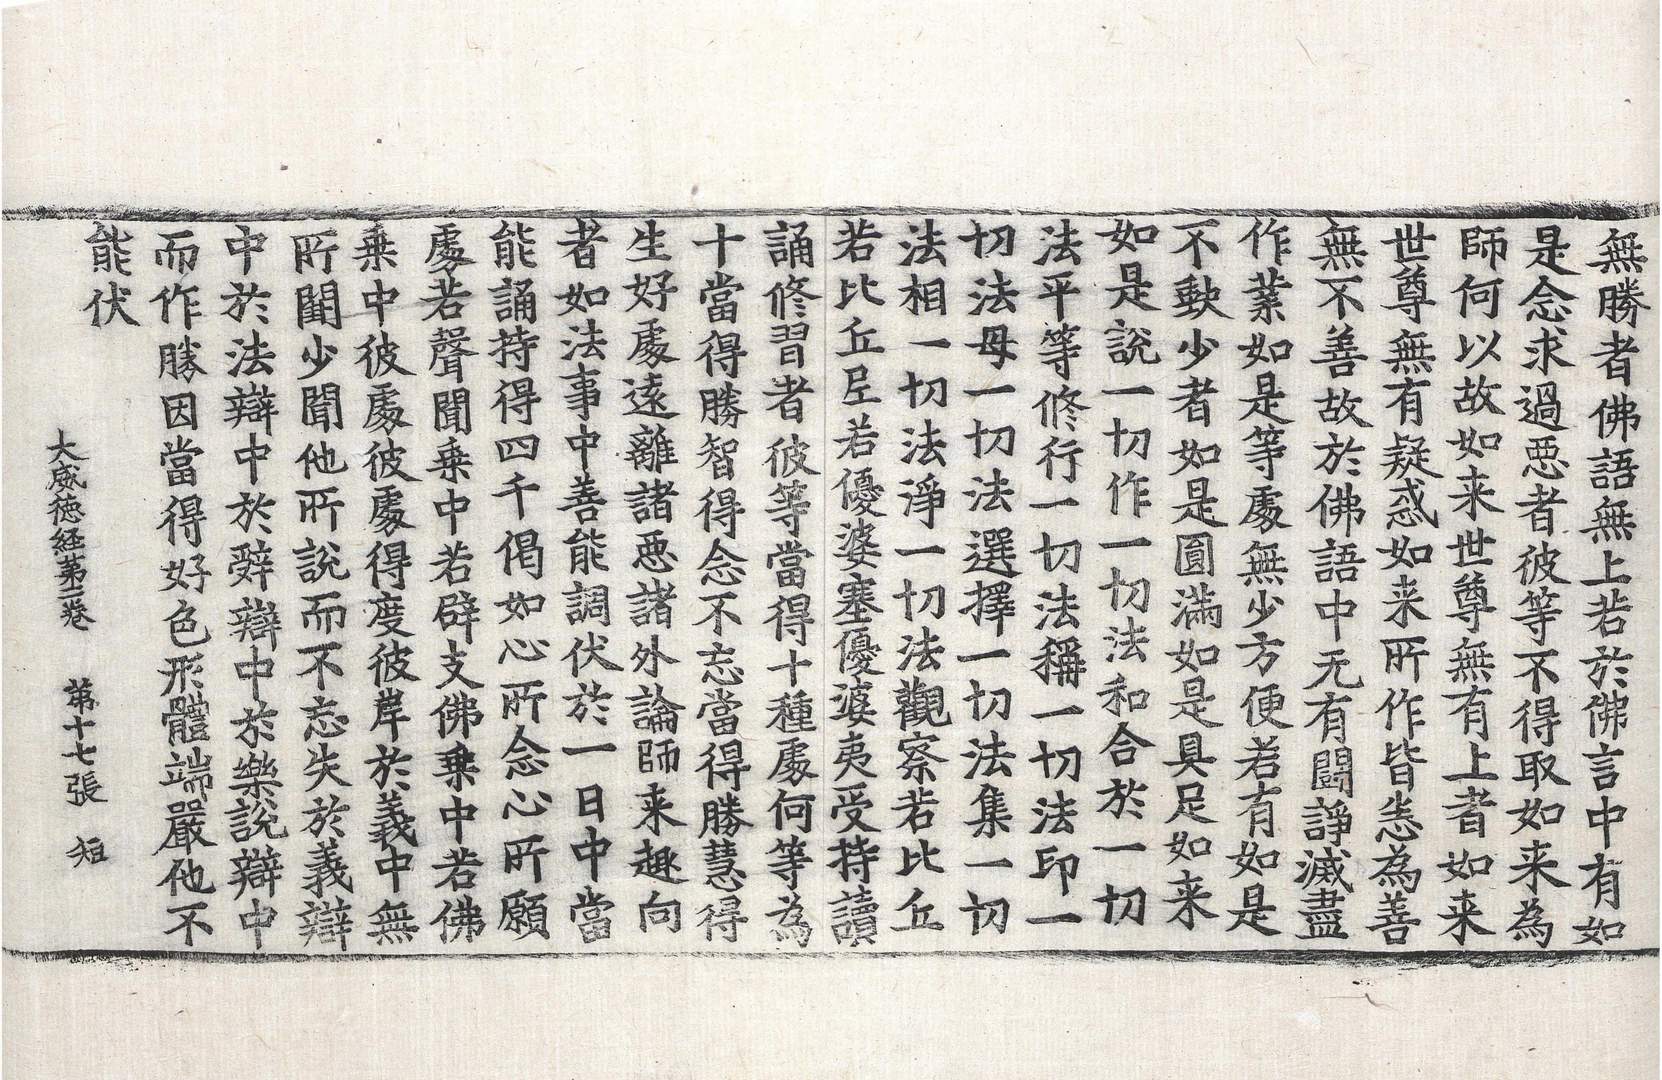 無勝者佛語無上若於佛言中有如
是念求過惡者彼等不得取如来為
師何以故如来世尊無有上者如来
世尊無有疑惑如来所作皆悉為善
無不善故於佛語中无有鬪諍滅盡
作業如是等處無少方便若有如是
不歎少者如是圓滿如是具足如来
如是說一切作一切法和合於一切
法平等修行一切法稱一切法印一
切法母一切法選擇一切法集一切
法相一切法淨一切法觀察若比丘
若比丘尼若優婆塞優婆夷受持讀
誦修習者彼等當得十種處何等為
十當得勝智得念不忘當得勝慧得
生好處遠離諸惡諸外論師来趣向
者如法事中善能調伏於一日中當
能誦持得四千偈如心所念心所願
處若聲聞乗中若辟支佛乗中若佛
乗中彼處彼處得度彼岸於義中無
所闕少聞他所說而不忘失於義辯
中於法辯中於辭辯中於樂說辯中
而作勝因當得好色形體端嚴他不
能伏
大威德経苐二卷 第十七張 短